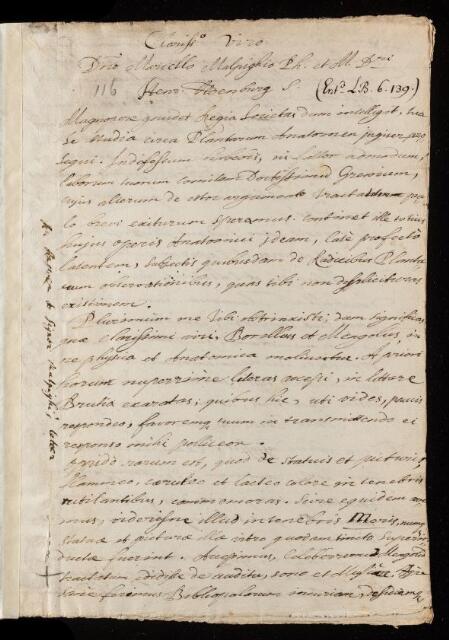 Clariss.o Viro
Dno Marcello Malpighio Ph. et M. Dri
116 Henr. Oldenburg S. (Ent.d L.B. 6. 139.)
Magnopere gaudet Regia Societas dum intelligit, tua
te studia circa Plantarum Anatomen jugiter
sequi. Indefessum nimirum, ni fallor admodum,
laborum tuorum comitem Doctissimum Grevium,
cujus alterum de isto argumento tractatum
brevi exiturum speramus. Continet ille totius
hujus operis Anatomici ideam, latè profectò
patentem, subjectis quibusdam de Radicibus Planta-
rum observationibus, quas tibi non displicituras
existimem.
Plurimum me tibi obstrinxisti, dum significas,
quae clarissimi viri, Borellus et Mengolus, in
re physica et Anatomica moliuntur. A priori
horum nuperrime literas accepi, in littore
Brutio exaratas; quibus hic, uti vides, paucis
respondeo, favorem tuum in transmittendo ei
responso mihi pollicens.
Quid rarum est, quod de statuis et picturis,
flammeo, caeruleo et lacteo colore in tenebris
rutilantibus, commemoras. Scire equidem
mus, videris ne illud in tenebris Meris, num
statuae et picturae illae vitro quodam tincto super
ductae fuerint. Accepimus, Celeberrimum Mengolum
tractatum edidisse de auditu, sono et Musica.
ferimus Bibliopolarum incuriam,